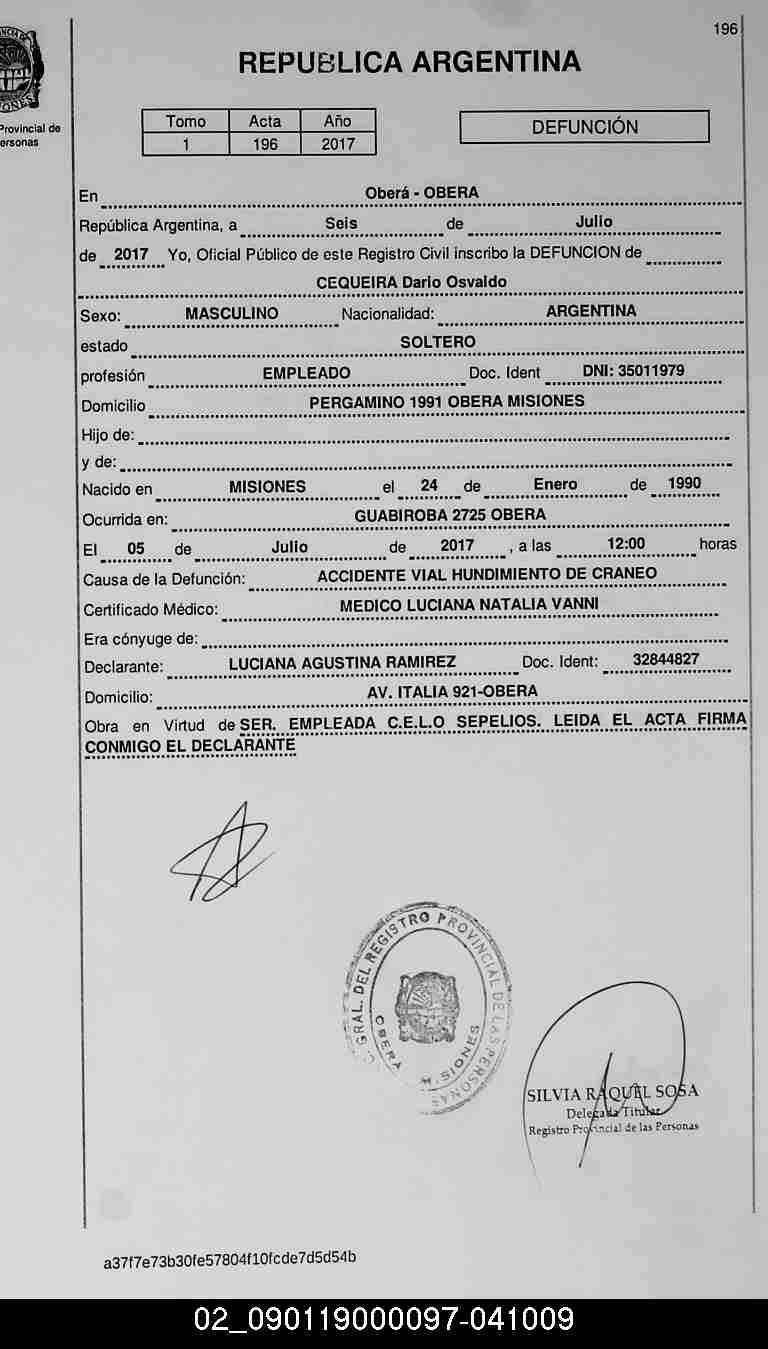 196
REPUBLICA ARGENTINA
Provincial de
ersonas
Tomo Acta Año
1 196 2017
DEFUNCIÓN
En Oberá - OBERA
República Argentina, a Seis de Julio
de 2017 Yo, Oficial Público de este Registro Civil inscribo la DEFUNCION de
CEQUEIRA Dario Osvaldo
Sexo: MASCULINO Nacionalidad: ARGENTINA
estado SOLTERO
profesión EMPLEADO Doc. Ident DNI: 35011979
Domicilio PERGAMINO 1991 OBERA MISIONES
Hijo de:
y de:
Nacido en MISIONES el 24 de Enero de 1990
Ocurrida en: GUABIROBA 2725 OBERA
El 05 de Julio de 2017 , a las 12:00 horas
Causa de la Defunción: ACCIDENTE VIAL HUNDIMIENTO DE CRANEO
Certificado Médico: MEDICO LUCIANA NATALIA VANNI
Era cónyuge de:
Declarante: LUCIANA AGUSTINA RAMIREZ Doc. Ident: 32844827
Domicilio: AV. ITALIA 921-OBERA
Obra en Virtud de SER. EMPLEADA C.E.L.O SEPELIOS. LEIDA EL ACTA FIRMA
CONMIGO EL DECLARANTE
GRAL. DEL REGISTRO PROVINCIAL DE LAS PERSONAS
OBERA MISIONES
SILVIA RAQUEL SOSA
Delegada Titular
Registro Provincial de las Personas
a37f7e73b30fe57804f10fcde7d5d54b
02_090119000097-041009